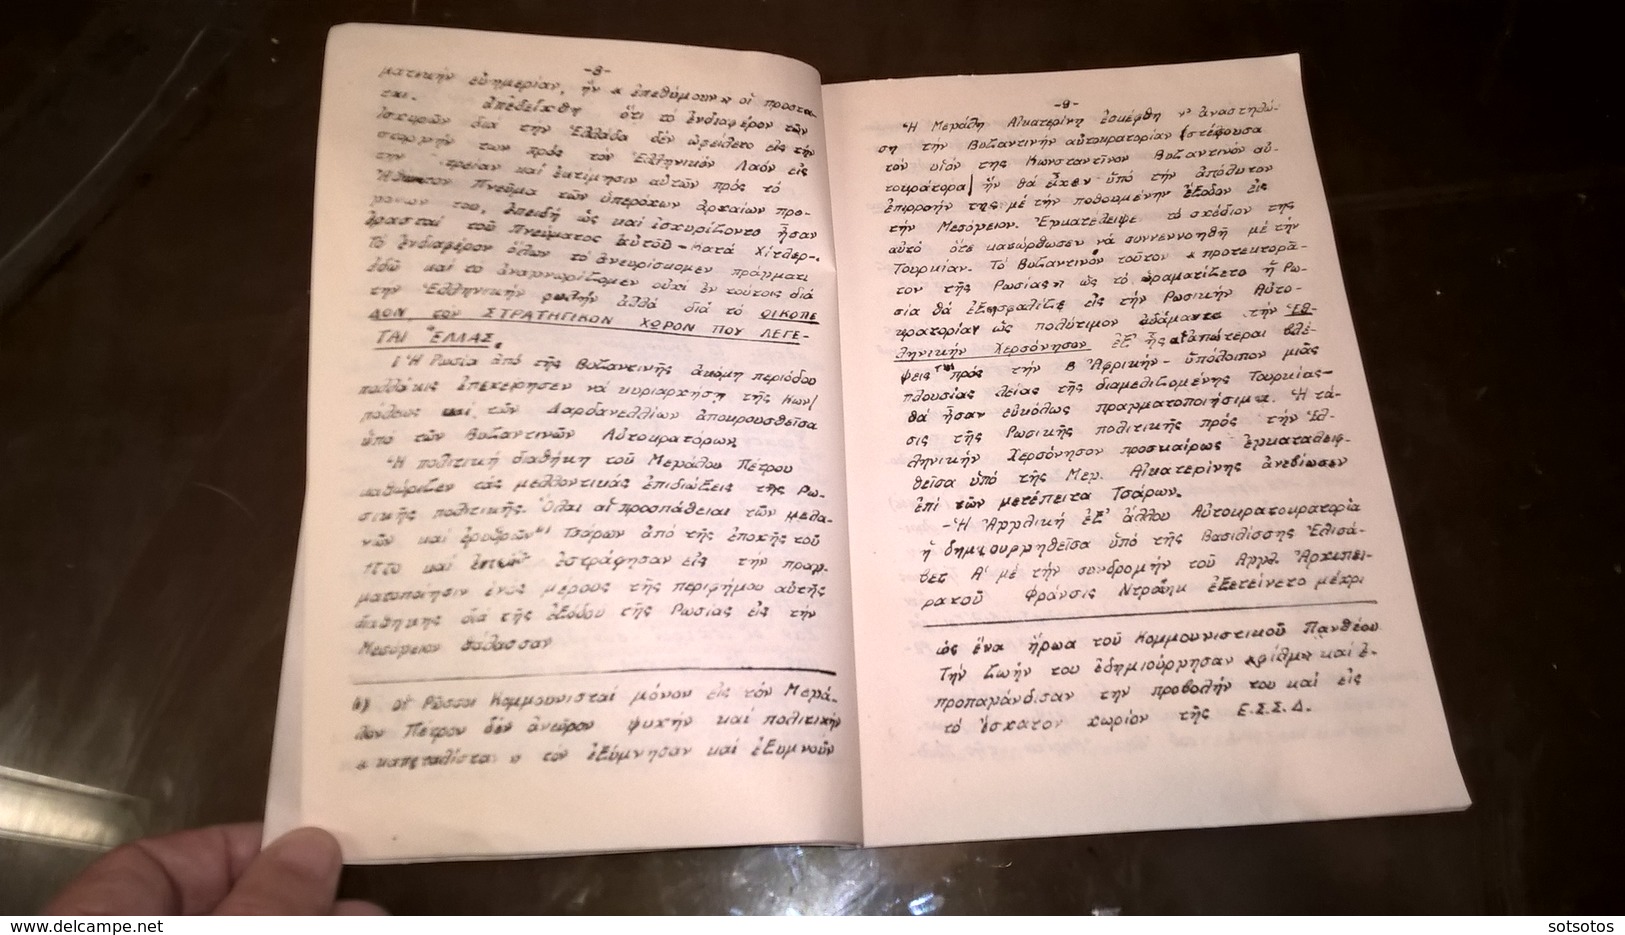 -8-
ματικήν εὐημερίαν, ἥν « ἐπεθύμουν » οἱ προστα-
ται. ἀπεδείχθη ὅτι τό ἐνδιαφέρον τῶν
Ἰσχυρῶν διά τήν Ἑλλάδα δέν ὠφείλετο εἰς τήν
στοργήν των πρός τόν Ἑλληνικόν Λαόν εἰς
τήν λατρείαν καί ἐκτίμησιν αὐτῶν πρός τό
Ἀθάνατον Πνεῦμα τῶν ὑπερόχων ἀρχαίων προ-
γόνων του, ἐπειδή ὡς καί ἰσχυρίζοντο ἦσαν
ἐρασταί τοῦ Πνεύματος αὐτοῦ - Κατά Χίτλερ-.
Τό ἐνδιαφέρον ὅλων τό ἀνευρίσκομεν πράγματι
ἐδῶ καί τό ἀναγνωρίζομεν οὐχί ἐν τούτοις διά
τήν Ἑλληνικήν φυλήν ἀλλά διά τό ΟΙΚΟΠΕ
ΔΟΝ, τον ΣΤΡΑΤΗΓΙΚΟΝ ΧΩΡΟΝ ΠΟΥ ΛΕΓΕ-
ΤΑΙ ἙΛΛΑΣ.
Ἡ Ρωσία ἀπό τῆς Βυζαντινῆς ἀκόμη περιόδου
πολλάκις ἐπεχείρησεν νά κυριαρχήσῃ τῆς Κων/
πόλεως καί τῶν Δαρδανελλίων ἀποκρουσθεῖσα
ὑπό τῶν Βυζαντινῶν Αὐτοκρατόρων.
Ἡ πολιτική διαθήκη τοῦ Μεγάλου Πέτρου
καθώριζεν τάς μελλοντικάς ἐπιδιώξεις τῆς Ρω-
σικῆς πολιτικῆς. Ὅλαι αἱ προσπάθειαι τῶν μελα-
νῶν καί ἐρυθρῶν Τσάρων ἀπό τῆς ἐποχῆς τοῦ
καί ἐστράφησαν εἰς τήν πραγ-
ματοποίησιν ἑνός μέρους τῆς περιφήμου αὐτῆς
διαθήκης διά τῆς ἐξόδου τῆς Ρωσίας εἰς τήν
Μεσόγειον θάλασσαν
οἱ Ρῶσσοι Κομμουνισταί μόνον εἰς τόν Μεγά-
λον Πέτρον δέν ἀνεῦρον ψυχήν καί πολιτικήν
« καπιταλίστα » τόν ἐξύμνησαν καί ἐξυμνοῦν
-9-
Ἡ Μεγάλη Αἰκατερίνη ἐσκέφθη ν' ἀναστηλώ-
σῃ τήν Βυζαντινήν αὐτοκρατορίαν (στέφουσα
τόν υἱόν της Κωνσταντῖνον Βυζαντινόν αὐ-
τοκράτορα) ἥν θά εἶχεν ὑπό τήν ἀπόλυτον
ἐπιρροήν της με τήν ποθουμένην ἔξοδον εἰς
τήν Μεσόγειον. Ἐγκατέλειψε τό σχέδιον της
αὐτό ὅτε κατώρθωσεν νά συννενοηθῇ μέ τήν
Τουρκίαν. Τό Βυζαντινόν τοῦτον « προτεκτορᾶ-
τον τῆς Ρωσίας » ὡς τό ὡραματίζετο ἡ Ρω-
σία θά ἐξησφαλίζε εἰς τήν Ρωσικήν Αὐτο-
κρατορίαν ὡς πολύτιμον ἀδάμαντα τήν Ἑλ-
ληνικήν Χερσόνησον ἐξ' ἧς αἱ ἀπώτεραι βλέ-
ψεις της πρός τήν Β Ἀφρικήν - ὑπόλοιπον μιᾶς
πλουσίας λείας τῆς διαμελιζομένης Τουρκίας -
θά ἦσαν εὐκόλως πραγματοποιήσιμαι. Ἡ τά-
σις τῆς Ρωσικῆς πολιτικῆς πρός τήν Ἑλ-
ληνικήν Χερσόνησον προσκαίρως ἐγκαταλειφ-
θεῖσα ὑπό τῆς Μεγ. Αἰκατερίνης ἀνεβίωσεν
ἐπί τῶν μετέπειτα Τσάρων.
- Ἡ Ἀγγλική ἐξ' ἄλλου Αὐτοκρατοκρατορία
ἡ δημιουργηθεῖσα ὑπό τῆς Βασιλίσσης Ἐλισά-
βετ Α' μέ τήν συνδρομήν τοῦ Αγγλ. Ἀρχιπει-
ρατοῦ Φράνσις Ντραίηκ ἐξετείνετο μέχρι
ὡς ἕνα ἥρωα τοῦ Κομμουνιστικοῦ Πανθέου
Τήν ζωήν του ἐδημιούργησαν καί ἐ-
προπαγάνδισαν τήν προβολήν του καί εἰς
τό ἔσχατον χωρίον τῆς Ε.Σ.Σ.Δ.
www.delcampe.net
sotsotos